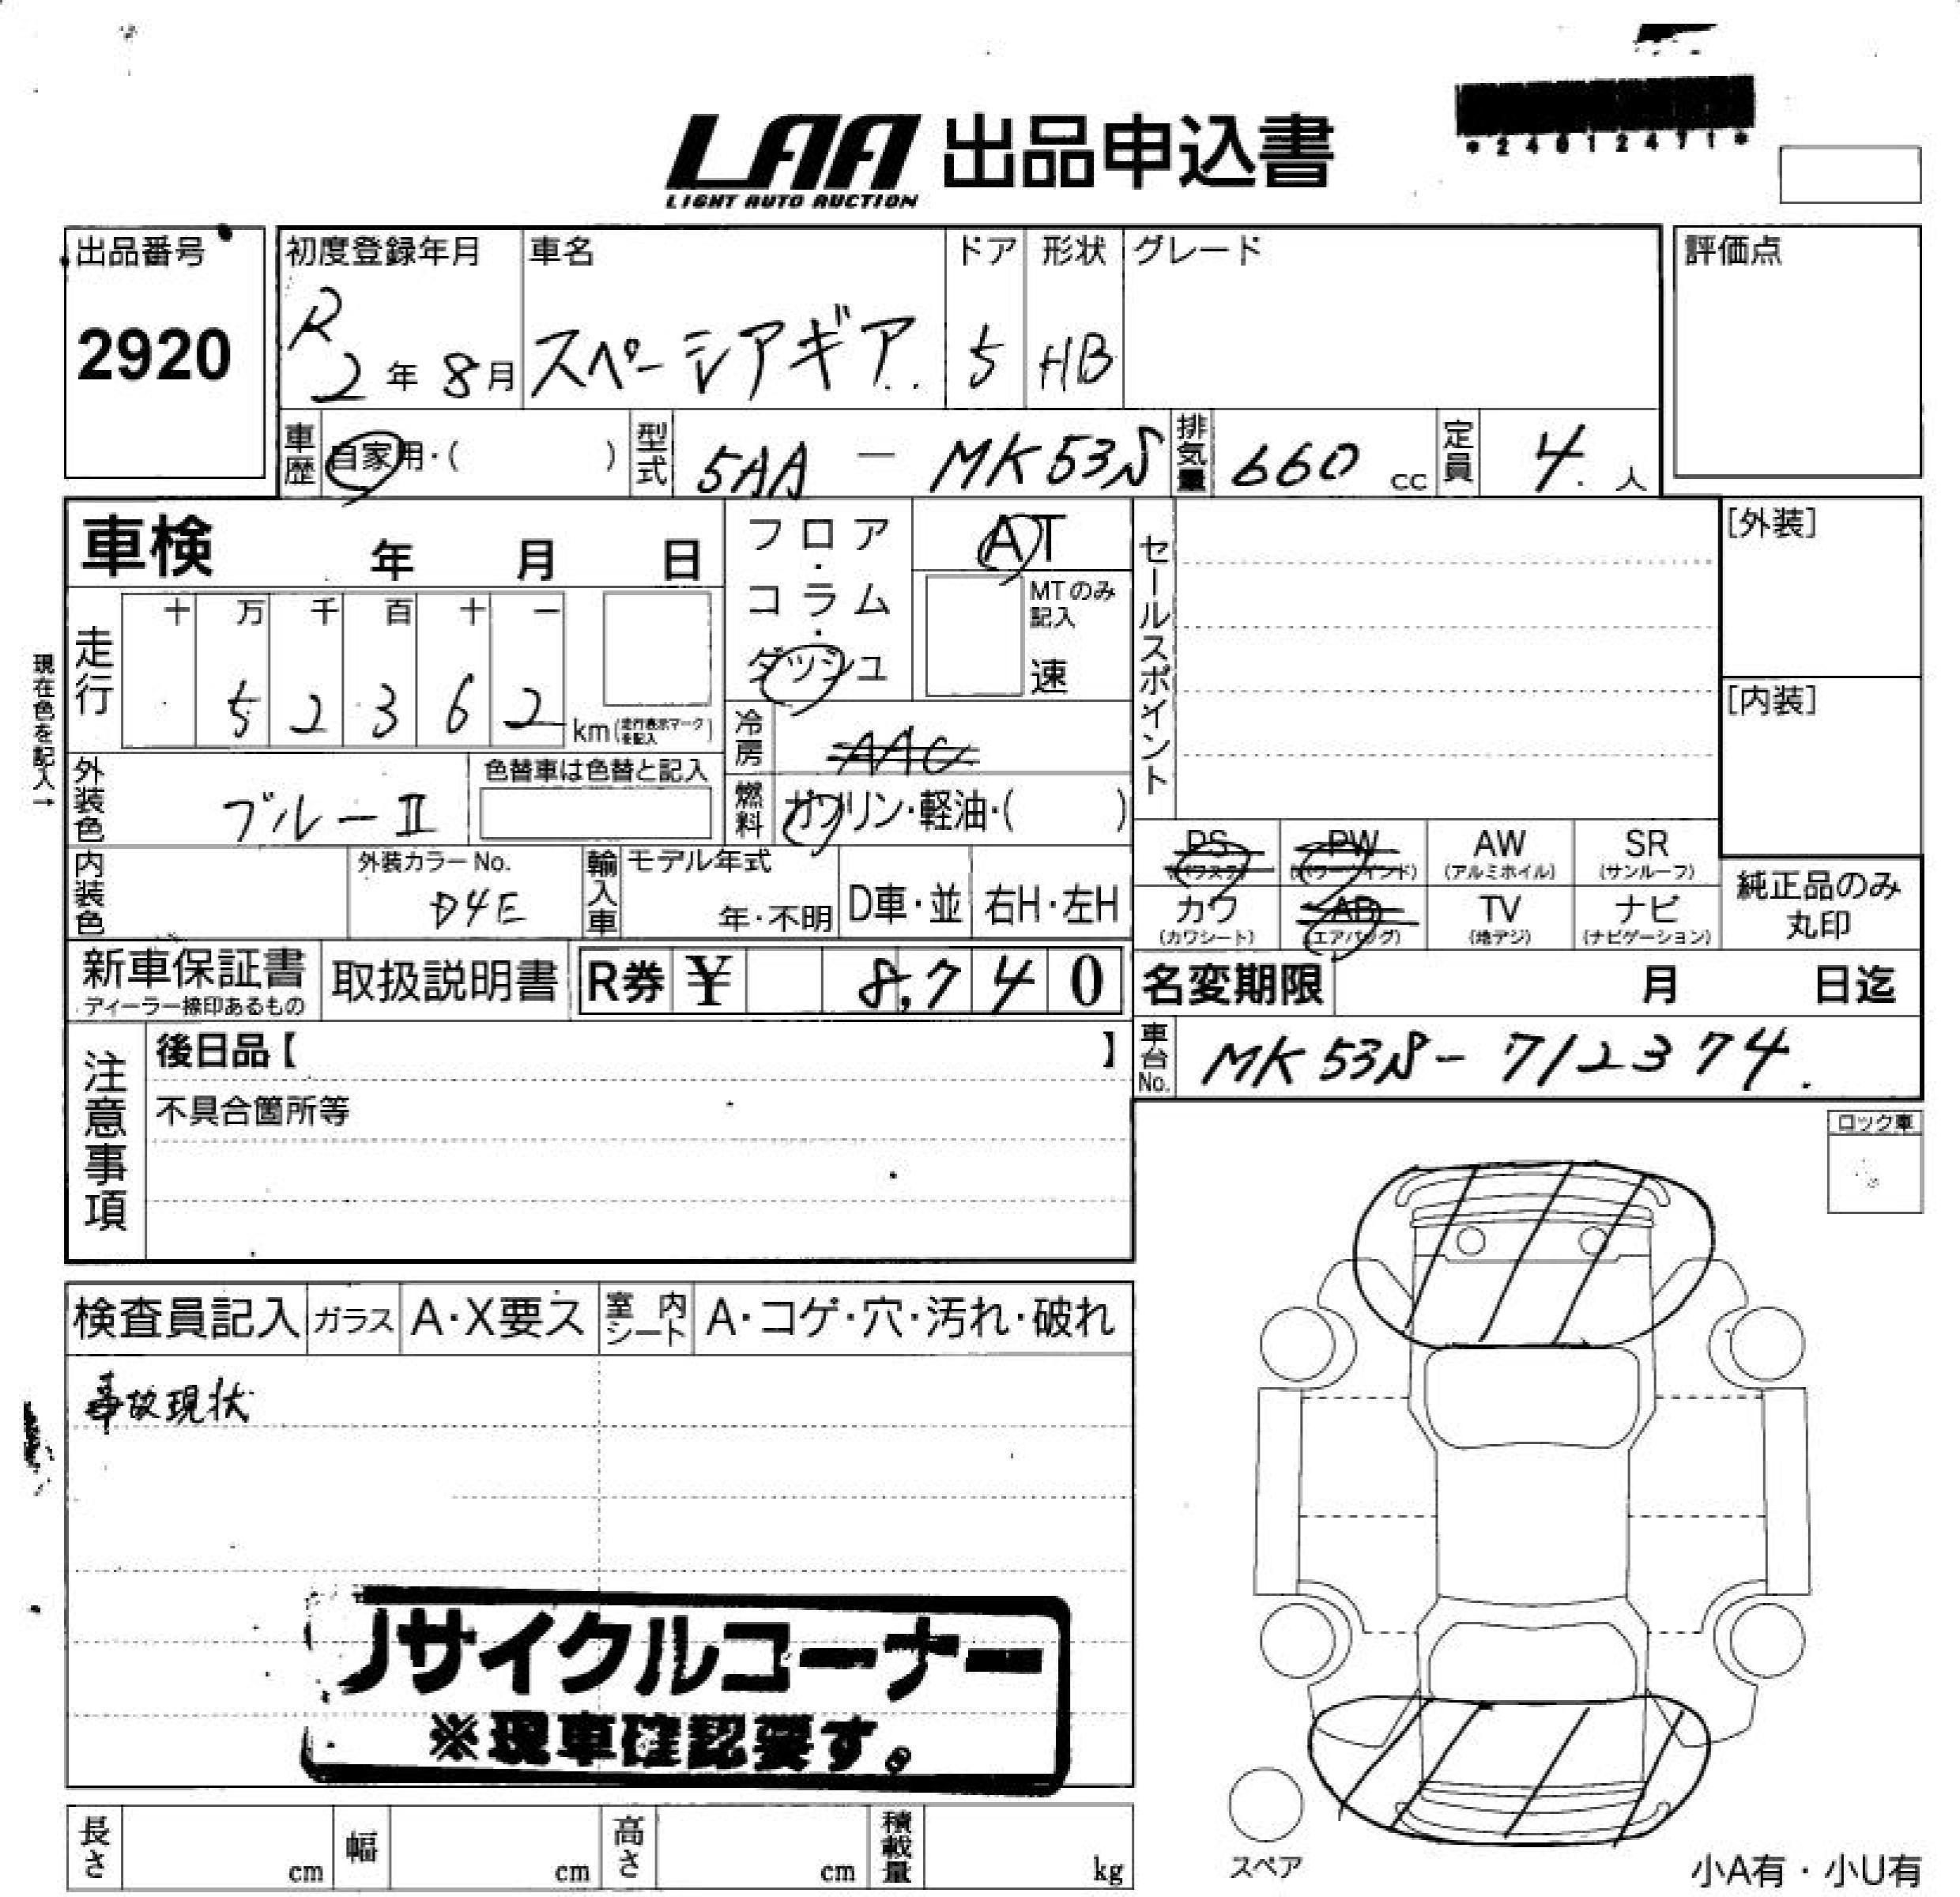 LAA 出品申込書
LIGHT AUTO AUCTION
*24012471*
出品番号
2920
初度登録年月 車名 ドア 形状 グレード
R2年8月 スペーシアギア 5 HB
評価点
車歴 自家用・( ) 型式 5AA - MK53S 排気量 660 cc 定員 4. 人
車検 年 月 日
フロア・コラム・ダッシュ
AT
MTのみ記入
速
セールスポイント
[外装]
[内装]
現在色を記入→
走行 十 万 千 百 十 一
5 2 3 6 2 km (走行表示マークを記入)
冷房 AAC
外装色 ブルーII 色替車は色替と記入
燃料 ガソリン・軽油・( )
PS (パワステ) PW (パワーウインド) AW (アルミホイル) SR (サンルーフ)
カワ (カワシート) AB (エアバッグ) TV (地デジ) ナビ (ナビゲーション)
純正品のみ丸印
内装色 外装カラーNo. D4E 輸入車 モデル年式 年・不明 D車・並 右H・左H
新車保証書 ディーラー捺印あるもの 取扱説明書 R券 ¥ 8,740
名変期限 月 日迄
車台No. MK53S-712374.
注意事項
後日品【 】
不具合箇所等
ロック車
検査員記入 ガラス A・X要ス 室内シート A・コゲ・穴・汚れ・破れ
事故現状
リサイクルコーナー
※現車確認要す。
長さ cm 幅 cm 高さ cm 積載量 kg
スペア
小A有・小U有